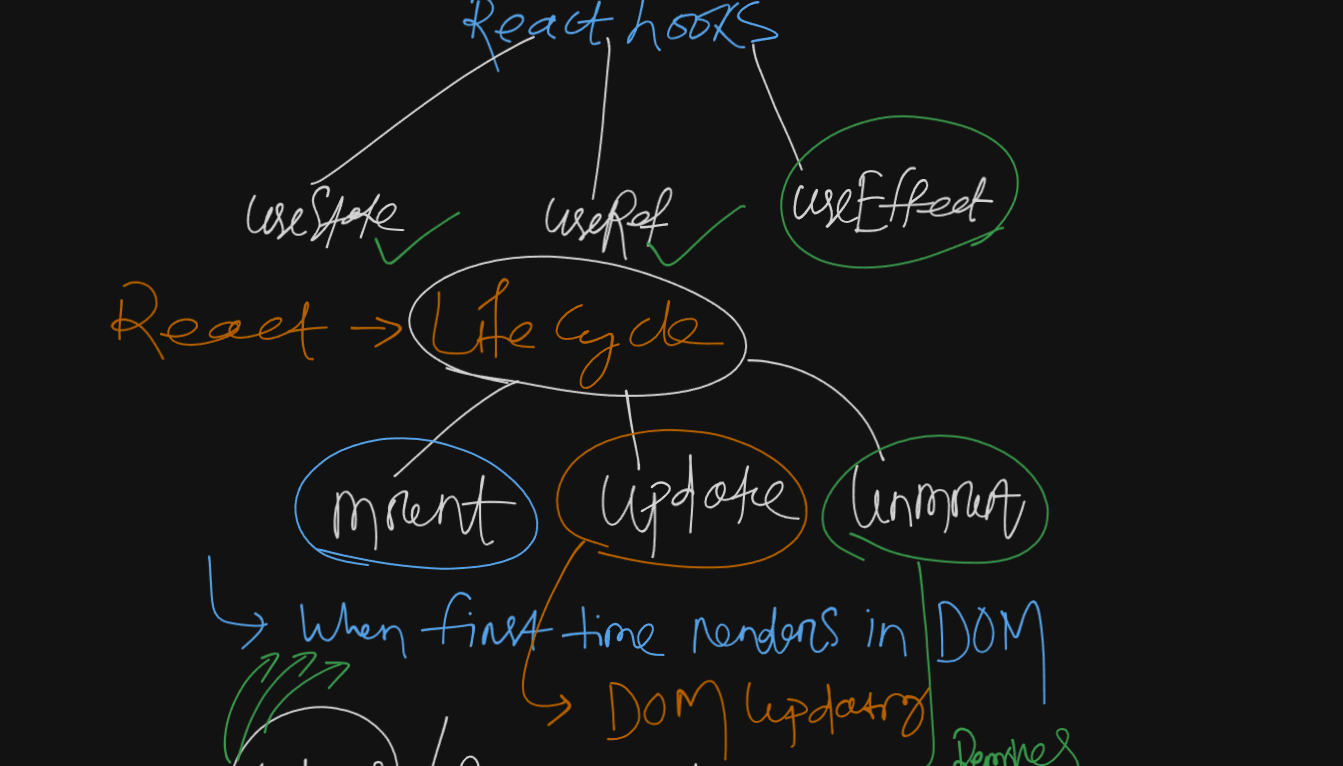 React hooks
useState useRef useEffect
React → Life Cycle
mount update unmount
→ When first time renders in DOM
→ DOM Updating